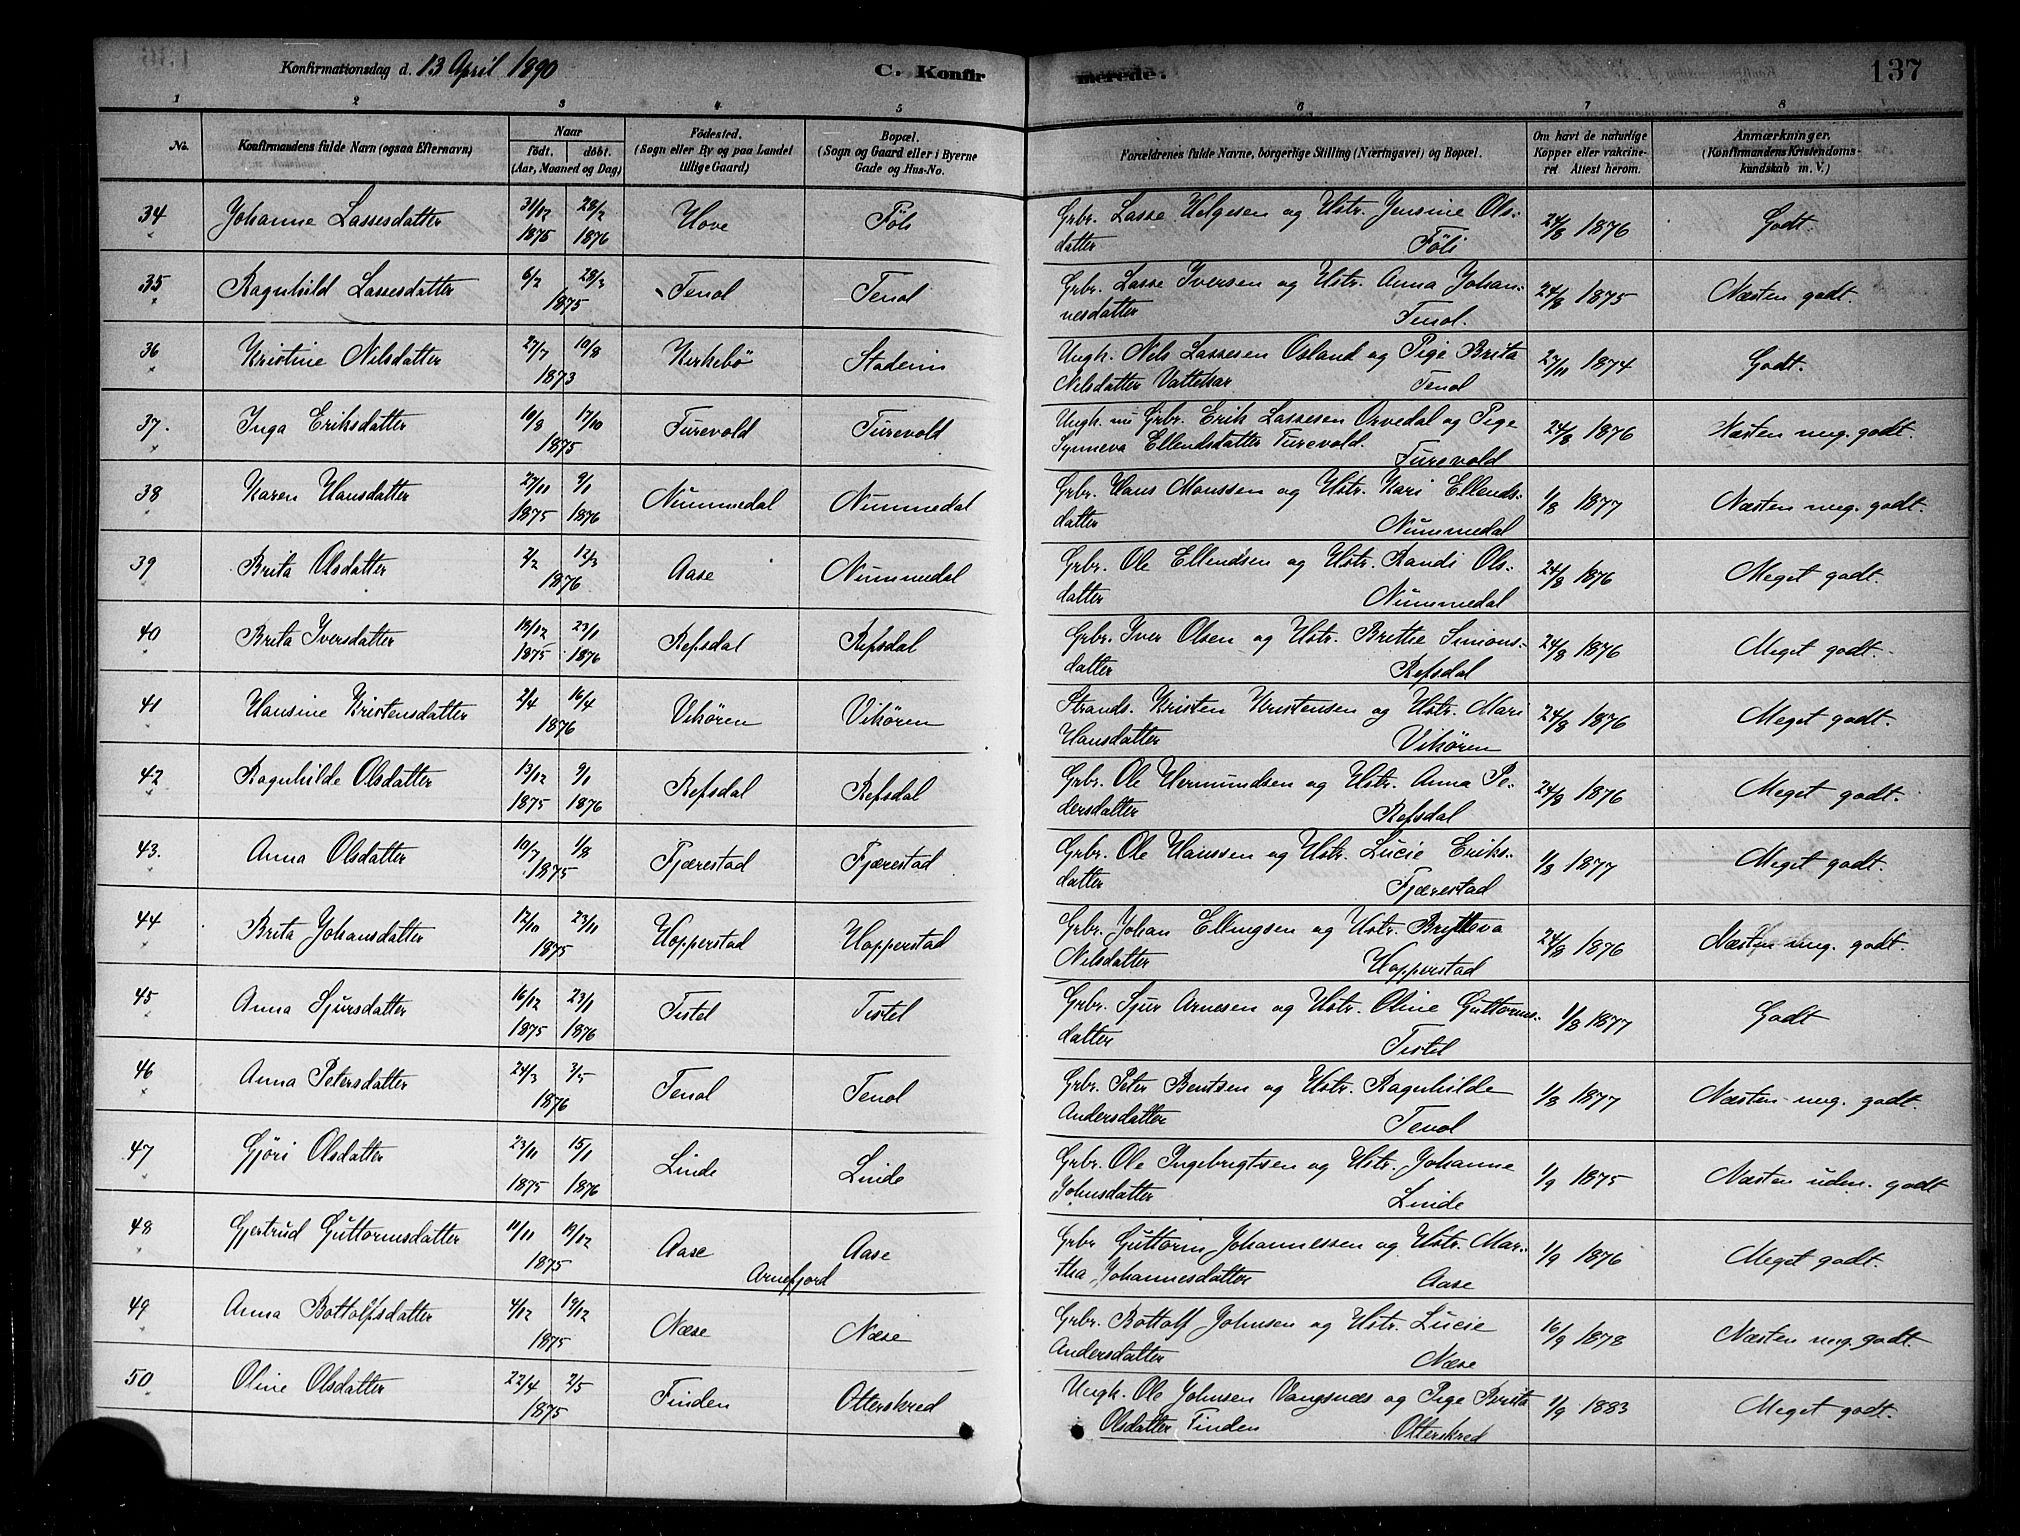 Konfirmationsdag d. 13 April 1890 C. Konfirmerede. 137
1 2 3 4 5 6 7 8
No. Konfirmandens fulde Navn (ogsaa Efternavn) Naar født. døbt. (Aar, Maaned og Dag) Fødested. (Sogn eller By og paa Landet tillige Gaard) Bopæl. (Sogn og Gaard eller i Byerne Gade og Hus-No. Forældrenes fulde Navne, borgerlige Stilling (Næringsvei) og Bopæl. Om havt de naturlige Kopper eller vakcineret Attest herom. Anmærkninger. (Konfirmandens Kristendomskundskab m. V.)
34 Johanne Lassesdatter 31/12 1875 28/2 1876 Hove Föli Grbr. Lasse Helgesen og Hstr. Jensine Olsdatter Föli 24/8 1876 Godt.
35 Ragnhild Lassesdatter 6/2 28/3 1875 Tenol Tenol Grbr. Lasse Iversen og Hstr. Anna Johannesdatter Tenol. 24/8 1875 Næsten godt.
36 Kristine Nilsdatter 27/7 10/8 1873 Kirkebö Stadeim Ungk. Nels Lassesen Osland og Pige Brita Nilsdatter Vattekar Tenol 27/11 1874 Godt.
37. Inga Eriksdatter 10/8 17/10 1875 Turevold Turevold Ungk. nu Grbr. Erik Lassesen Orvedal og Pige Synneva Ellendsdatter Turevold. Turevold 24/8 1876 Næsten meg. godt.
38 Karen Hansdatter 27/11 1875 9/1 1876 Nummedal Nummedal Grbr. Hans Monssen og Hstr. Kari Ellendsdatter Nummedal 1/8 1877 Næsten meg. godt.
39 Brita Olsdatter 2/2 12/3 1876 Aase Nummedal Grbr. Ole Ellendsen og Hstr. Randi Olsdatter Nummedal 24/8 1876 Meget godt.
40 Brita Iversdatter 19/12 1875 23/1 1876 Refsdal Refsdal Grbr. Iver Olsen og Hstr. Brithe Simonsdatter Refsdal 24/8 1876 Meget godt.
41 Hansine Kristensdatter 2/4 16/4 1876 Vikören Vikören Strands. Kristen Kristensen og Hstr. Mari Hansdatter Vikören 24/8 1876 Meget godt.
42 Ragnhilde Olsdatter 13/12 1875 9/1 1876 Refsdal Refsdal Grbr. Ole Hermundsen og Hstr. Anna Pedersdatter Refsdal 24/8 1876 Meget godt.
43. Anna Olsdatter 10/7 1/8 1875 Fjærestad Fjærestad Grbr. Ole Hanssen og Hstr. Lucie Eriksdatter Fjærestad 1/8 1877 Meget godt.
44 Brita Johansdatter 12/10 23/11 1875 Hopperstad Hopperstad Grbr. Johan Ellingsen og Hstr. Nilsdatter Hopperstad 24/8 1876 Næsten meg. godt.
45 Anna Sjursdatter 16/12 1875 23/1 1876 Tistel Tistel Grbr. Sjur Arnesen og Hstr. Oline Guttormsdatter Tistel 1/8 1877 Godt
46 Anna Petersdatter 24/3 3/5 1876 Tenol Tenol Grbr. Peter Bentsen og Hstr. Ragnhilde Andersdatter Tenol 1/8 1877 Næsten meg. godt.
47 Gjöri Olsdatter 23/11 1875 15/1 1876 Linde Linde Grbr. Ole Ingebrigtsen og Hstr. Johanne Johnsdatter Linde 1/9 1875 Næsten uden. godt
48 Gjertrud Guttormsdatter 11/11 19/12 1875 Aase Aase Grbr Guttorm Johannessen og Hstr. Martha Johannesdatter Aase 1/9 1876 Meget godt.
49 Anna Bottolfsdatter 4/12 19/12 1875 Arnefjord Næse Næse Grbr. Bottolf Johnsen og Hstr. Lucie Andersdatter Næse 16/9 1878 Næsten meg. godt.
50 Oline Olsdatter 22/4 2/5 1875 Finden Otterskred Ungk. Ole Johnsen Vangsnæs og Pige Brita Olsdatter Finden Otterskred 1/9 1883 Meget godt.